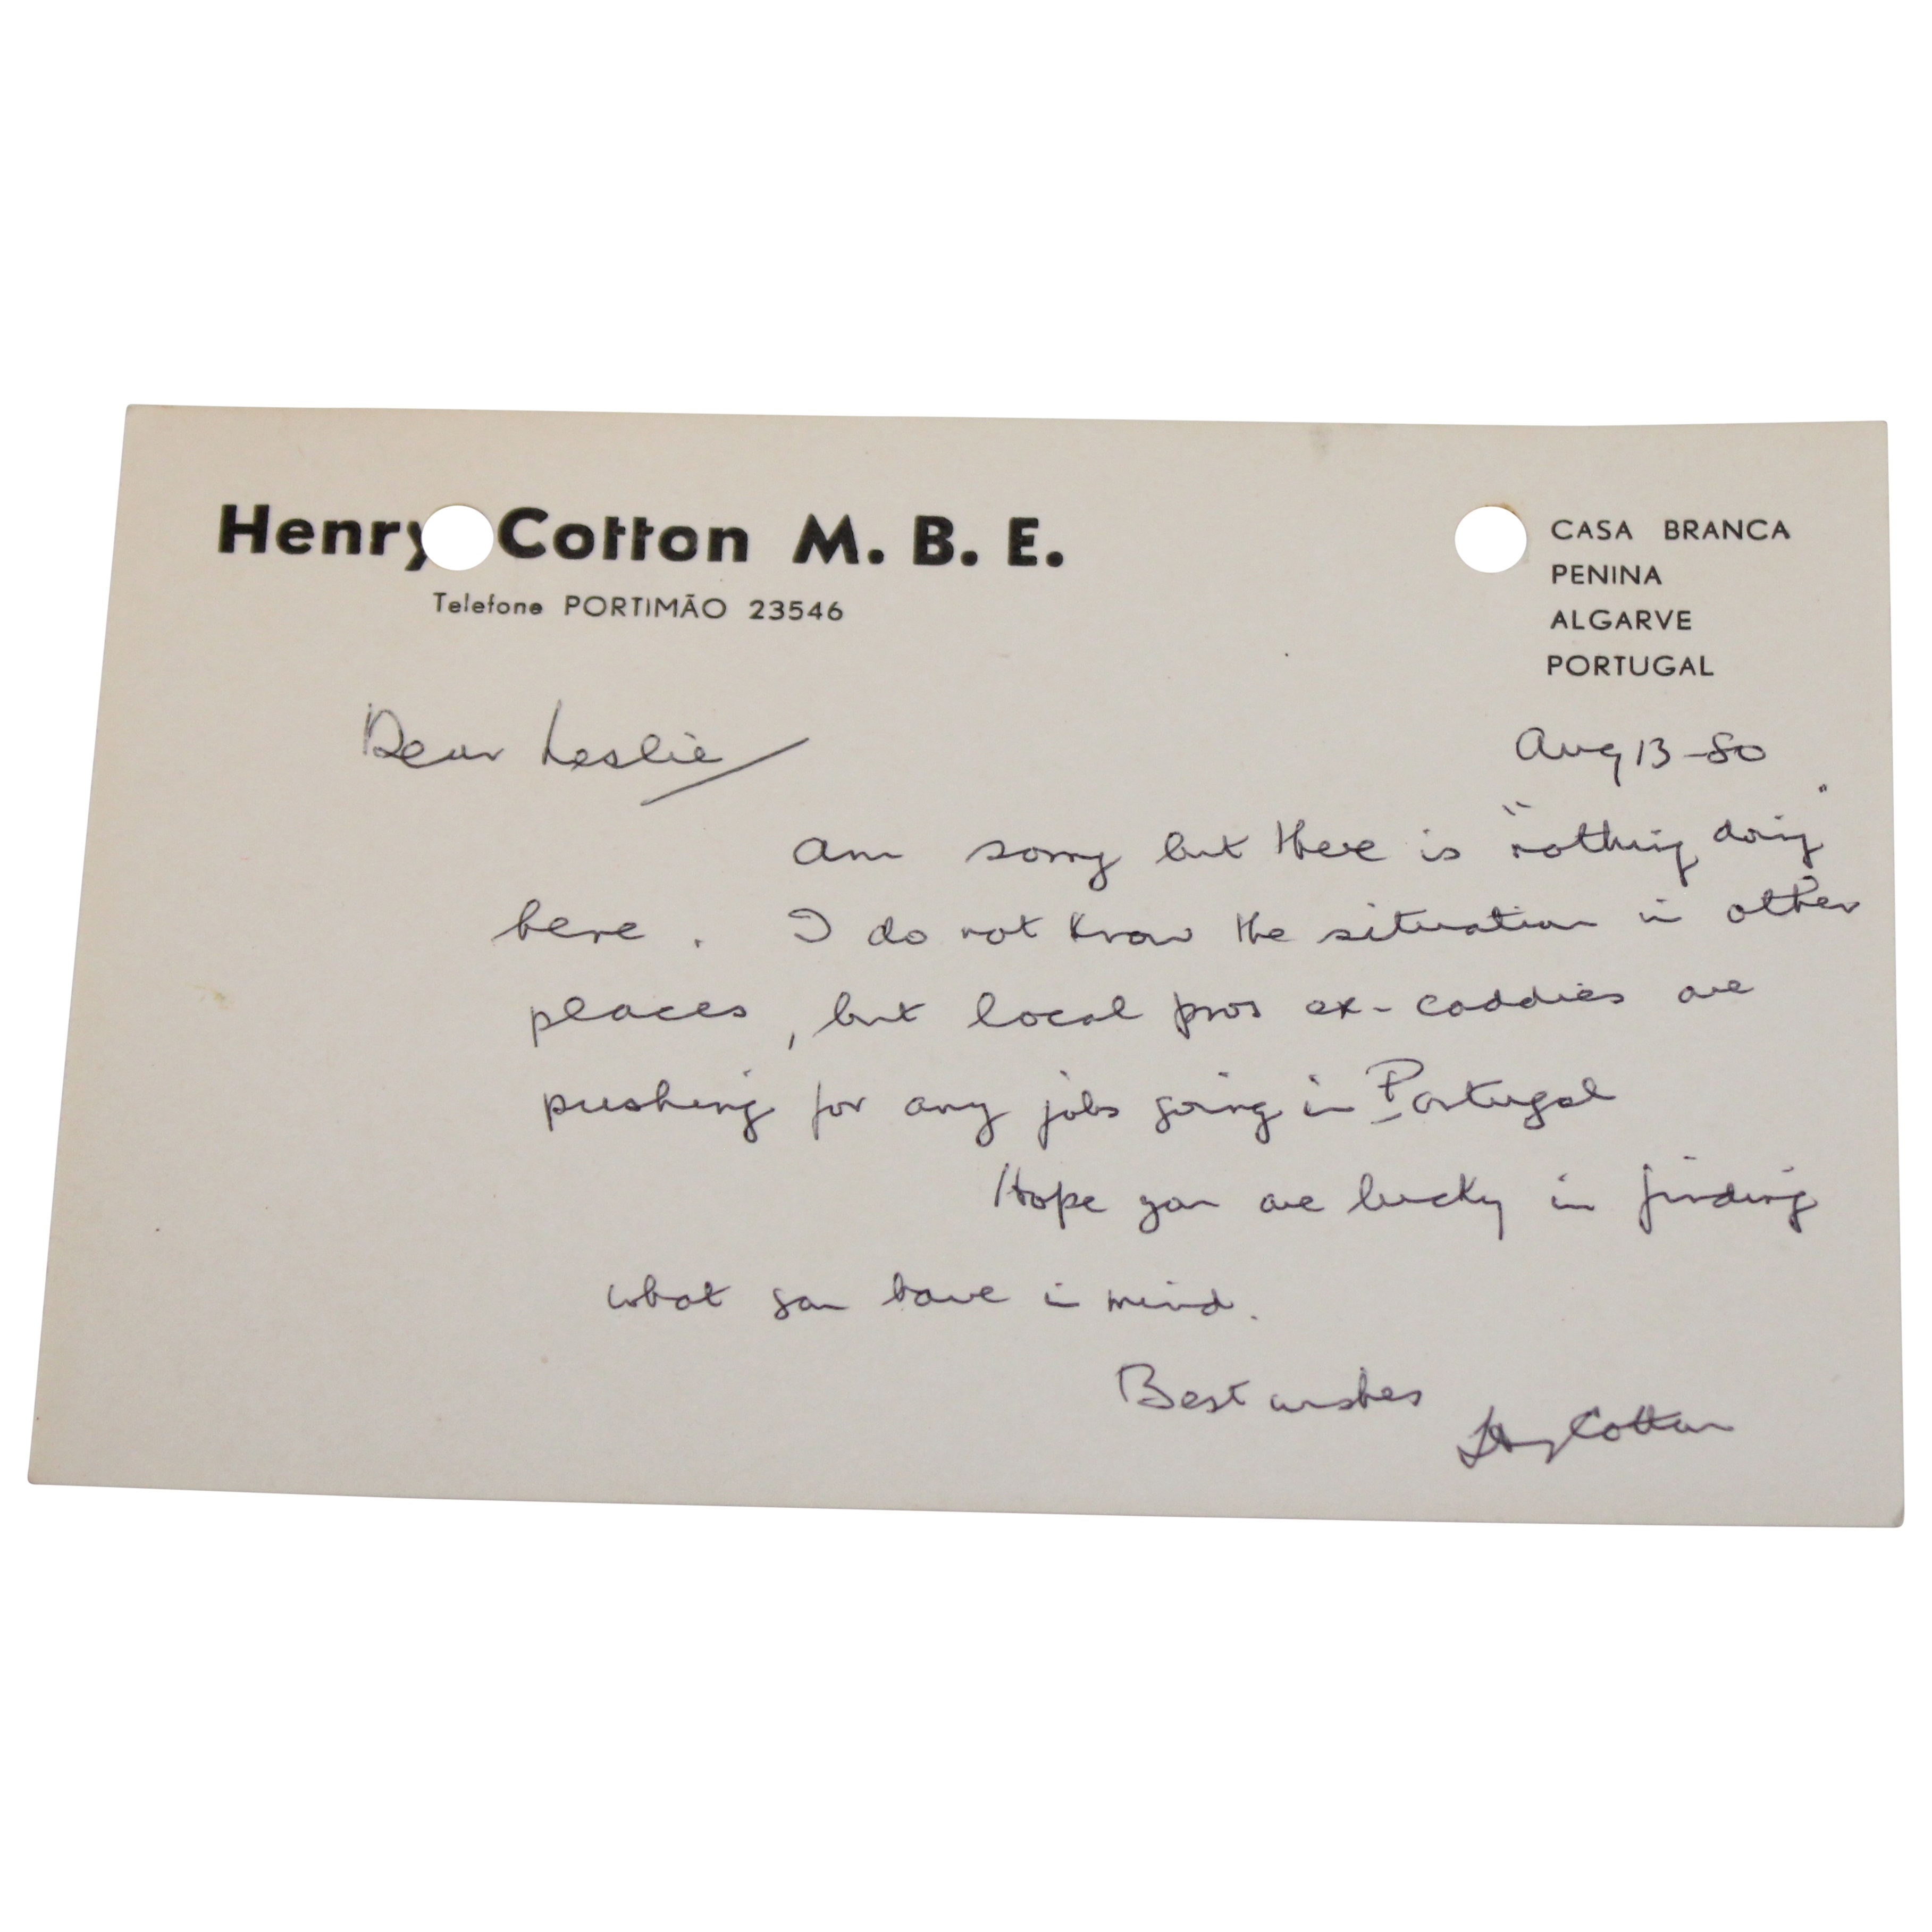 Henry Cotton M. B. E.
Telefone PORTIMÃO 23546
CASA BRANCA
PENINA
ALGARVE
PORTUGAL
Dear Leslie
Aug 13 -80
Am sorry but there is "nothing doing"
here. I do not know the situation in other
places, but local pros ex-caddies are
pushing for any jobs going in Portugal
Hope you are lucky in finding
what you have in mind.
Best wishes
Henry Cotton